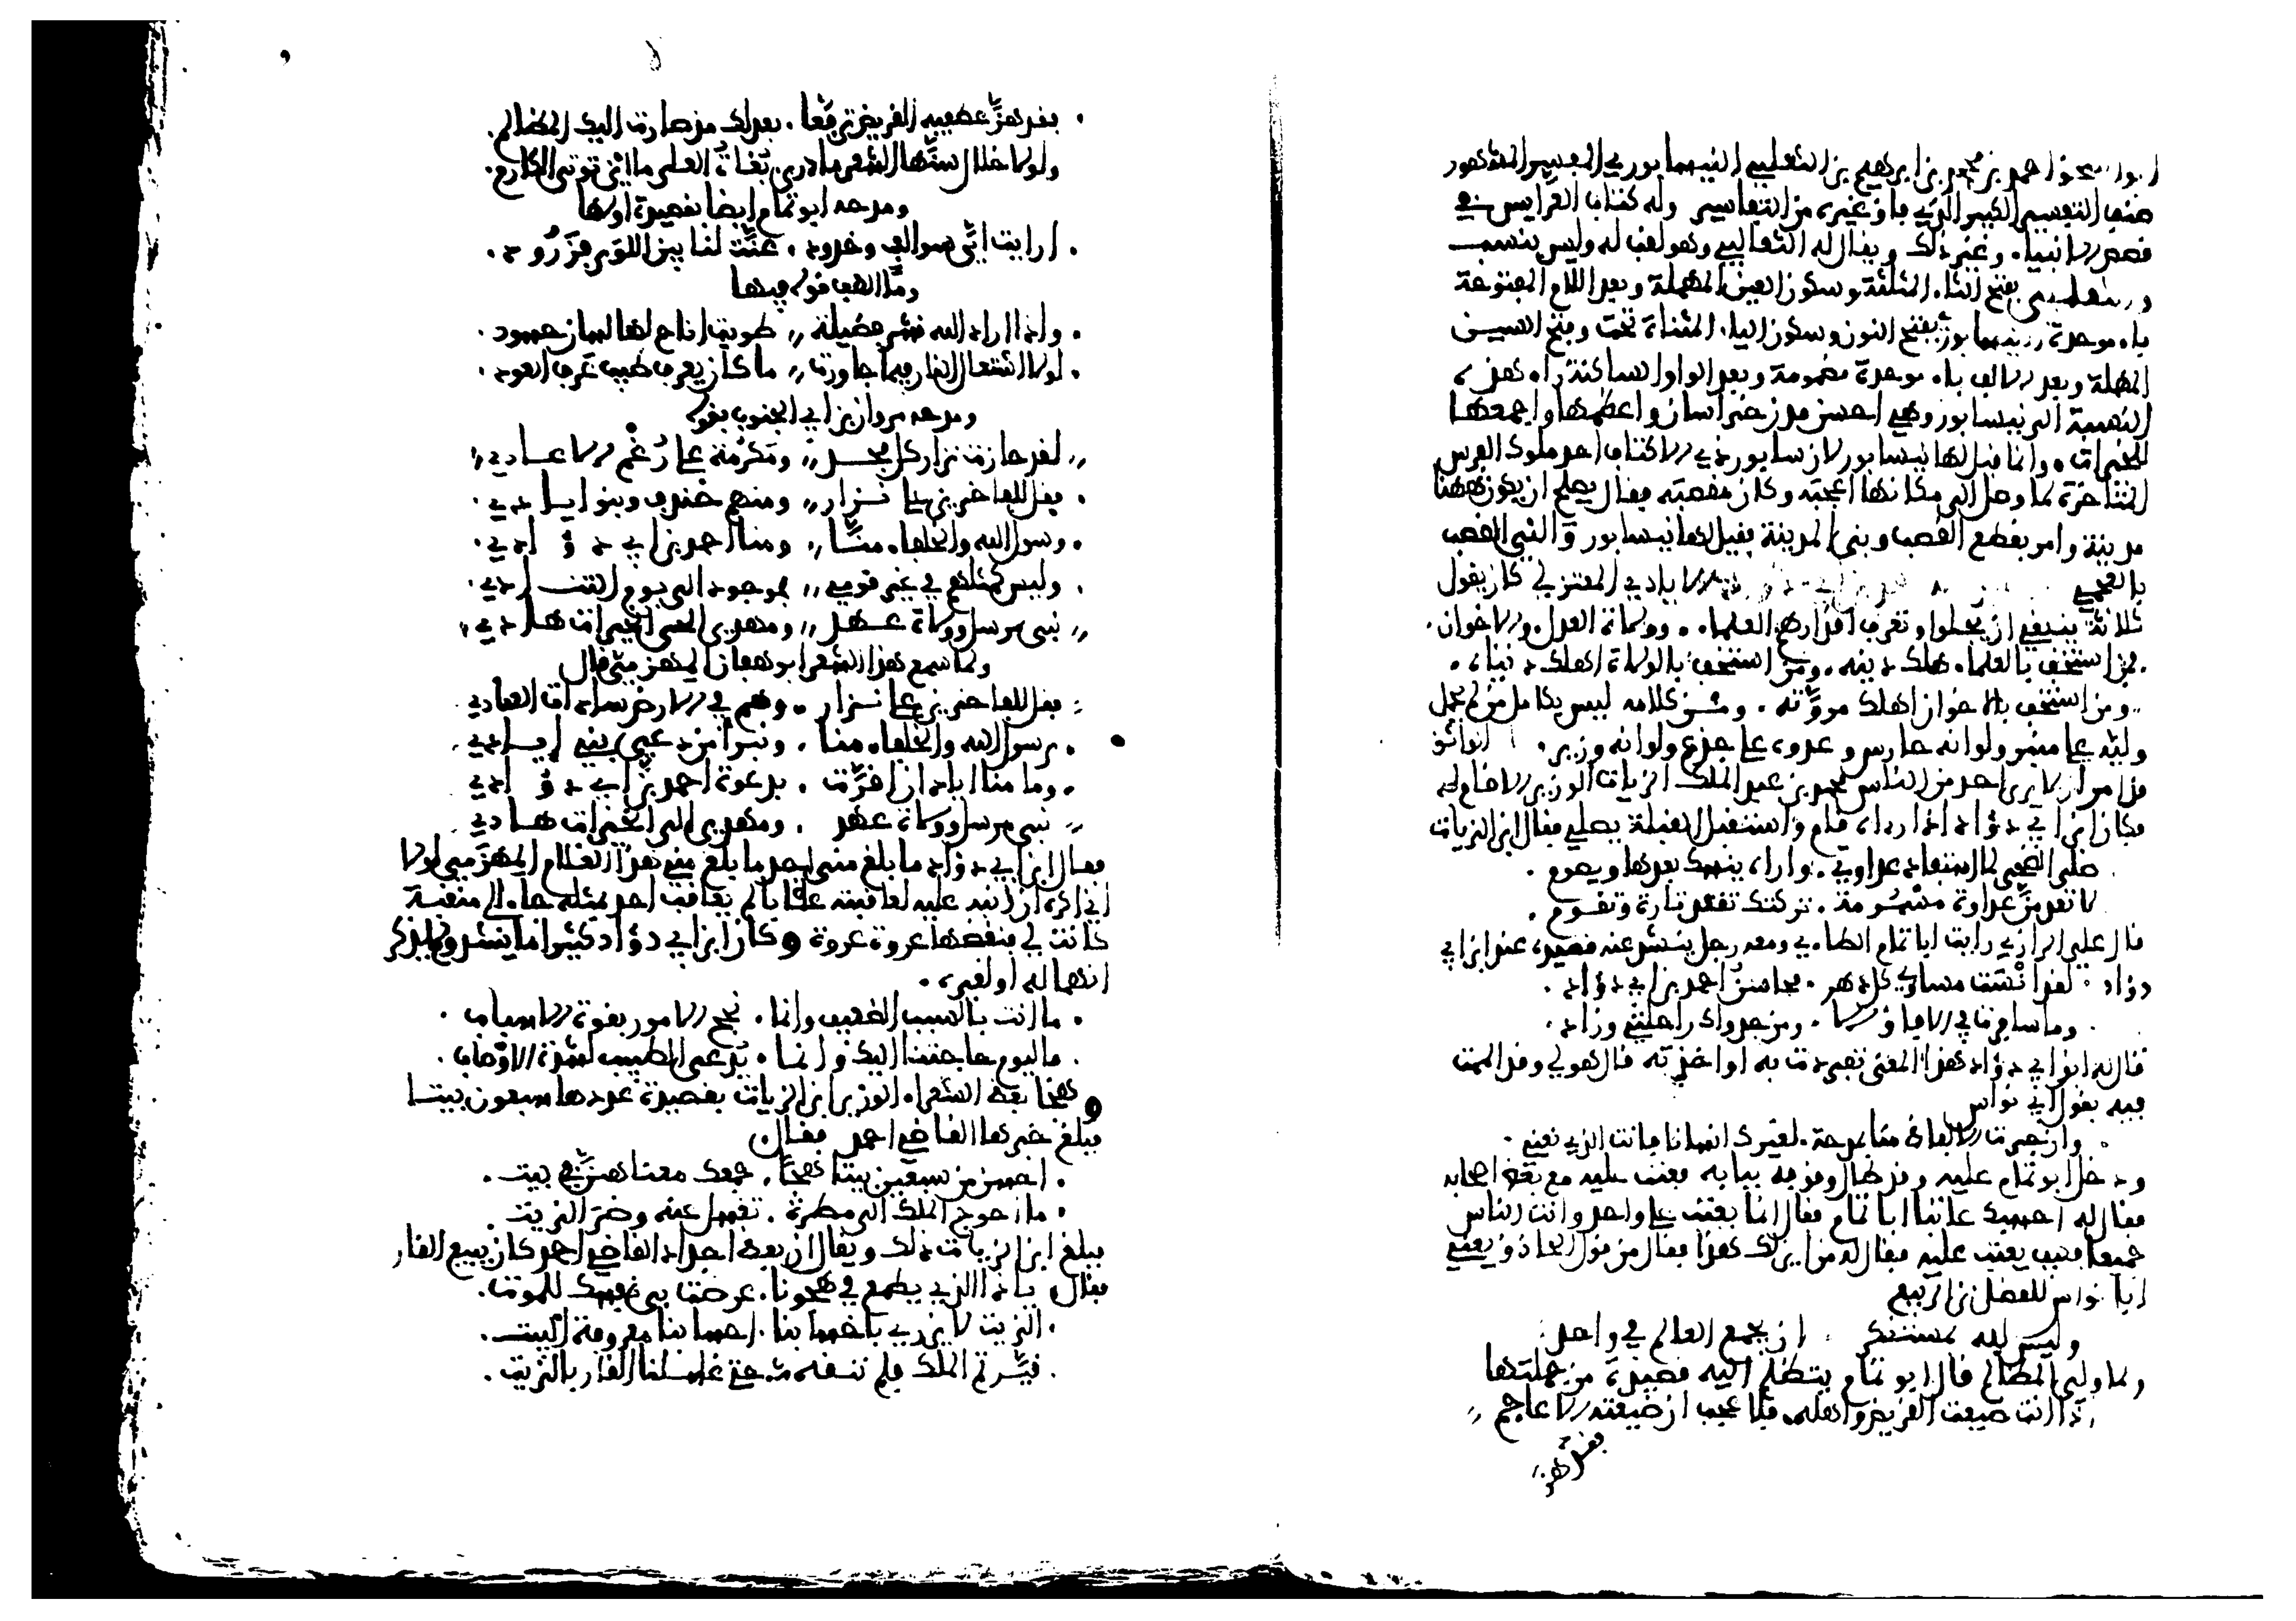 ابو اسحق احمد بن محمد بن ابرهيم بن الثعلبي النيسابوري المفسر المشهور
صنف التفسير الكبير الذي فاق غيره من التفاسير وله كتاب العرايس في
قصص الانبياء. وغير ذلك ويقال له الثعالبي وهو لقب له وليس بنسب
و بفتح الثاء المثلثة وسكون العين المهملة وبعد اللام المفتوحة
باء موحدة ونيسابور بفتح النون وسكون الياء المثناة تحت وفتح السين
المهملة وبعد الالف باء موحدة مضمومة وبعد الواو الساكنة راء هذه
النسبة الى نيسابور وهي احسن مدن خراسان واعظمها واجمعها
للخيرات. وانما قيل لها نيسابور لان سابور ذي الاكتاف احد ملوك الفرس
المتاخرة لما وصل الى مكانها اعجبته وكان مقصبة فقال يصلح ان يكون ههنا
مدينة وامر بقطع القصب وبنى المدينة فقيل لها نيسابور والني القصب
بالعجمي الايادي المعتزلي كان يقول
ثلاثة ينبغي ان يجلوا وتعرف اقدارهم العلماء. وولاة العدل. والاخوان.
فمن استخف بالعلماء هلك دينه. ومن استخف بالولاة اهلك دنياه.
ومن استخف بالاخوان اهلك مروته. ومن كلامه ليس بكامل من لم يحمل
وليه على منبر ولو انه حارس وعدوه على جذع ولو انه وزير. الواثق
قد امر ان لا يرى احد من الناس محمد بن عبد الملك الزيات الوزير الا قام له
فكان ابن ابي دؤاد اذا رداه قام واستقبل القبلة يصلي فقال ابن الزيات
صلى الضحى لما استفاد عداوتي. واراه ينسك بعدها ويصوم.
لا تعدمن عداوة مشؤمة. تركتك تقعد تارة وتقوم.
قال علي الرازي رايت ابا تمام الطاءي ومعه رجل ينشد عنه قصيده عند ابن ابي
دؤاد. لقد انست مساوي كل دهر. محاسن احمد بن ابي دؤاد.
وما سافرت في الافاق الا. ومن جدواك راحلتي وزاد.
قال له ابن ابي دؤاد هذا المعنى تفردت به او اخذته قال هو لي وقد الممت
فيه بقول ابي نواس
وان جرت الالفاظ منا بمدحة. لغيرك انسانا فانت الذي نعني.
ودخل ابو تمام عليه وقد طال وقوفه ببابه فعتب عليه مع بعض اصحابه
فقال له احسبك عاتبا ابا تمام فقال انما يعتب على واحد وانت الناس
جميعا فكيف يعتب عليه فقال له من اين لك هذا فقال من قول الحاذق يعني
ابا نواس للفضل بن الربيع
وليس لله بمستنكر. ان يجمع العالم في واحد.
ولما ولي المظالم قال ابو تمام يتظلم اليه قصيدة من جملتها
اذا انت ضيعت القريض واهله. فلا عجب ان ضيعته الاعاجم
فقد هز
فقد هز عطفيه القريض ترفعا. بعدلك مذ صارت اليك المظالم.
ولولا خلال سنها الشعر ما درى بغاة العلى من اين توتى المكارم.
ومدحه ابو تمام ايضا بقصيدة اولها
ارايت اي سوالف وخدود. عنت لنا بين اللوى فزرود.
وما الطف قوله فيها
واذا اراد الله نشر فضيلة. طويت اتاح لها لسان حسود.
لولا اشتعال النار فيما جاورت. ما كان يعرف طيب عرف العود.
ومدحه مروان بن ابي الجنوب بقوله
لقد حازت نزار كل مجد. ومكرمة على رغم الاعادي
فقل للفاخرين على نزار. ومنهم خندف وبنو ايادي.
رسول الله والخلفاء منا. ومنا احمد بن ابي دؤادي.
وليس كمثلهم في غير قومي. بموجود الى يوم التنادي.
نبي مرسل وولاة عهد. ومهدي الى الخيرات هادي
ولما سمع هذا الشعر ابو هفان المهزمي قال
فقل للفاخرين على نزار. وهم في الارض سادات العبادي
رسول الله والخلفاء منا. ونبرا من دعي بني ايادي
وما منا اياد ان اقرت. بدعوة احمد بن ابي دؤادي
نبي مرسل وولاة عهد. ومهدي الى الخيرات هادي
فقال ابن ابي دؤاد ما بلغ مني احد ما بلغ مني هذا الغلام المهزمي لولا
اني اكره ان انبه عليه لعاقبته عقابا لم يعاقب احد بمثله جاء الى منقبة
كانت لي فنقضها عروة عروة وكان ابن ابي دؤاد كثيرا ما ينشد ولم يذكر
انهما له او لغيره.
ما انت بالسبب الضعيف وانما. نجح الامور بقوة الاسباب.
فاليوم حاجتنا اليك وانما. يدعى الطبيب لشدة الاوصاب.
وهجا بعض الشعراء الوزير ابن الزيات بقصيدة عددها سبعون بيتا
فبلغ خبرها القاضي احمد فقال
احسن من سبعين بيتا هجا. جمعك معناهن في بيت.
ما احوج الملك الى مطرة. تغسل عنه وضر الزيت.
فبلغ ابن الزيات ذلك ويقال ان بعض اجداد القاضي احمد كان يبيع القار
فقال يا ذا الذي يطمع في هجونا. عرضت بي نفسك للموت.
الزيت لا يزري باحسابنا. احسابنا معروفة البيت.
قيرتم الملك فلم ننقه. حتى غسلنا القار بالزيت.